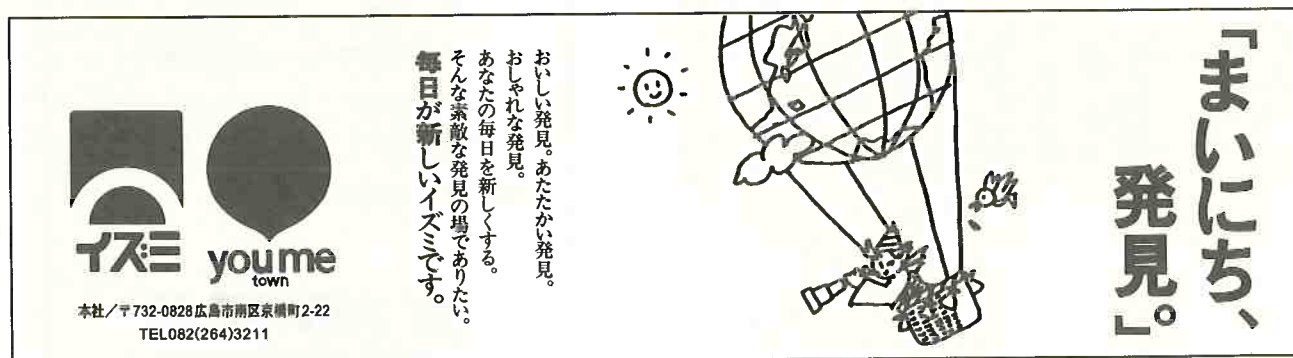 「まいにち、
発見。」
おいしい発見。あたたかい発見。
おしゃれな発見。
あなたの毎日を新しくする。
そんな素敵な発見の場でありたい。
毎日が新しいイズミです。
イズミ
youme
town
本社/〒732-0828広島市南区京橋町2-22
TEL082(264)3211